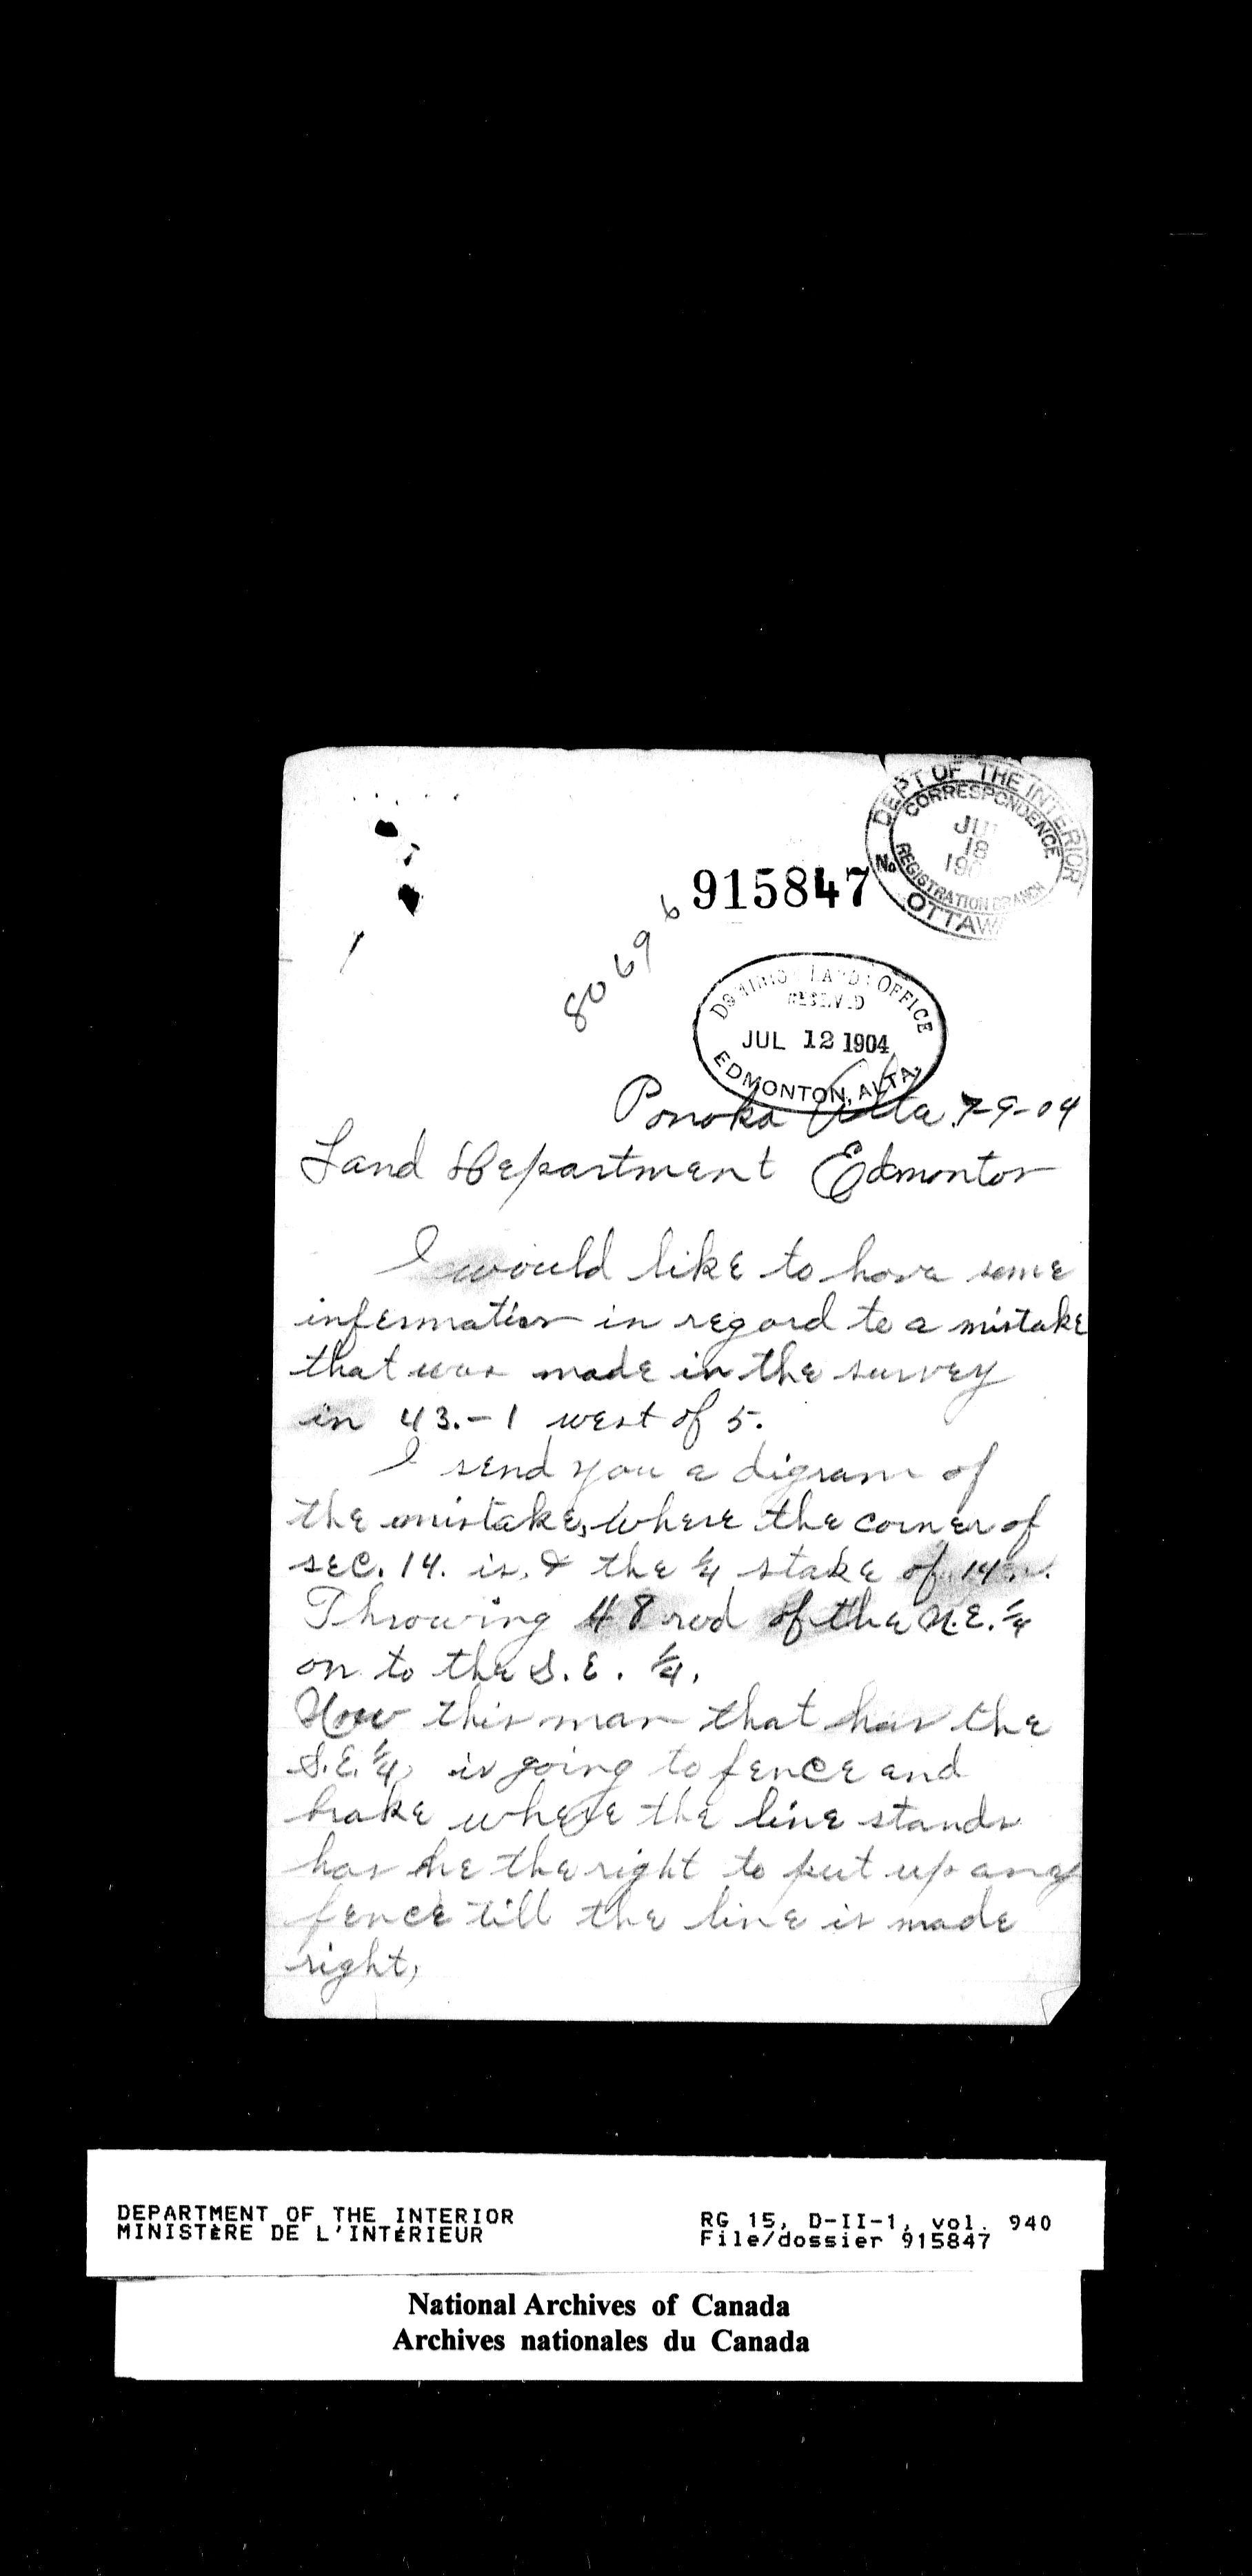 DEPT OF THE INTERIOR
CORRESPONDENCE
JU
18
190
No
REGISTRATION BRANCH
OTTAWA
915847
80696
DOMINION LANDS OFFICE
RECEIVED
JUL 12 1904
EDMONTON, ALTA.
Ponoka Alta. 7-9-04
Land Department Edmonton
I would like to have some
information in regard to a mistake
that was made in the survey
in 43.-1 west of 5.
I send you a digram of
the mistake, where the corner of
sec. 14. is, & the 1/4 stake of 14
Throwing 48 rod of the N.E. 1/4
on to the S.E. 1/4.
Now this man that has the
S.E. 1/4, is going to fence and
brake where the line stands
has he the right to put up any
fence till the line is made
right,
DEPARTMENT OF THE INTERIOR
MINISTÈRE DE L'INTÉRIEUR
RG 15, D-II-1, vol. 940
File/dossier 915847
National Archives of Canada
Archives nationales du Canada